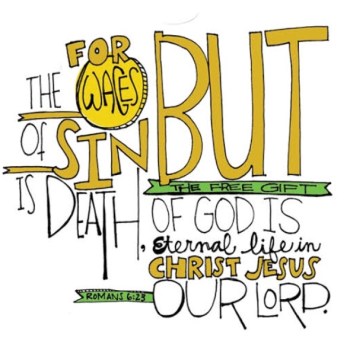 FOR
THE WAGES
OF SIN
IS DEATH,
BUT
THE FREE GIFT
OF GOD IS
Eternal life in
CHRIST JESUS
OUR LORD.
ROMANS 6:23